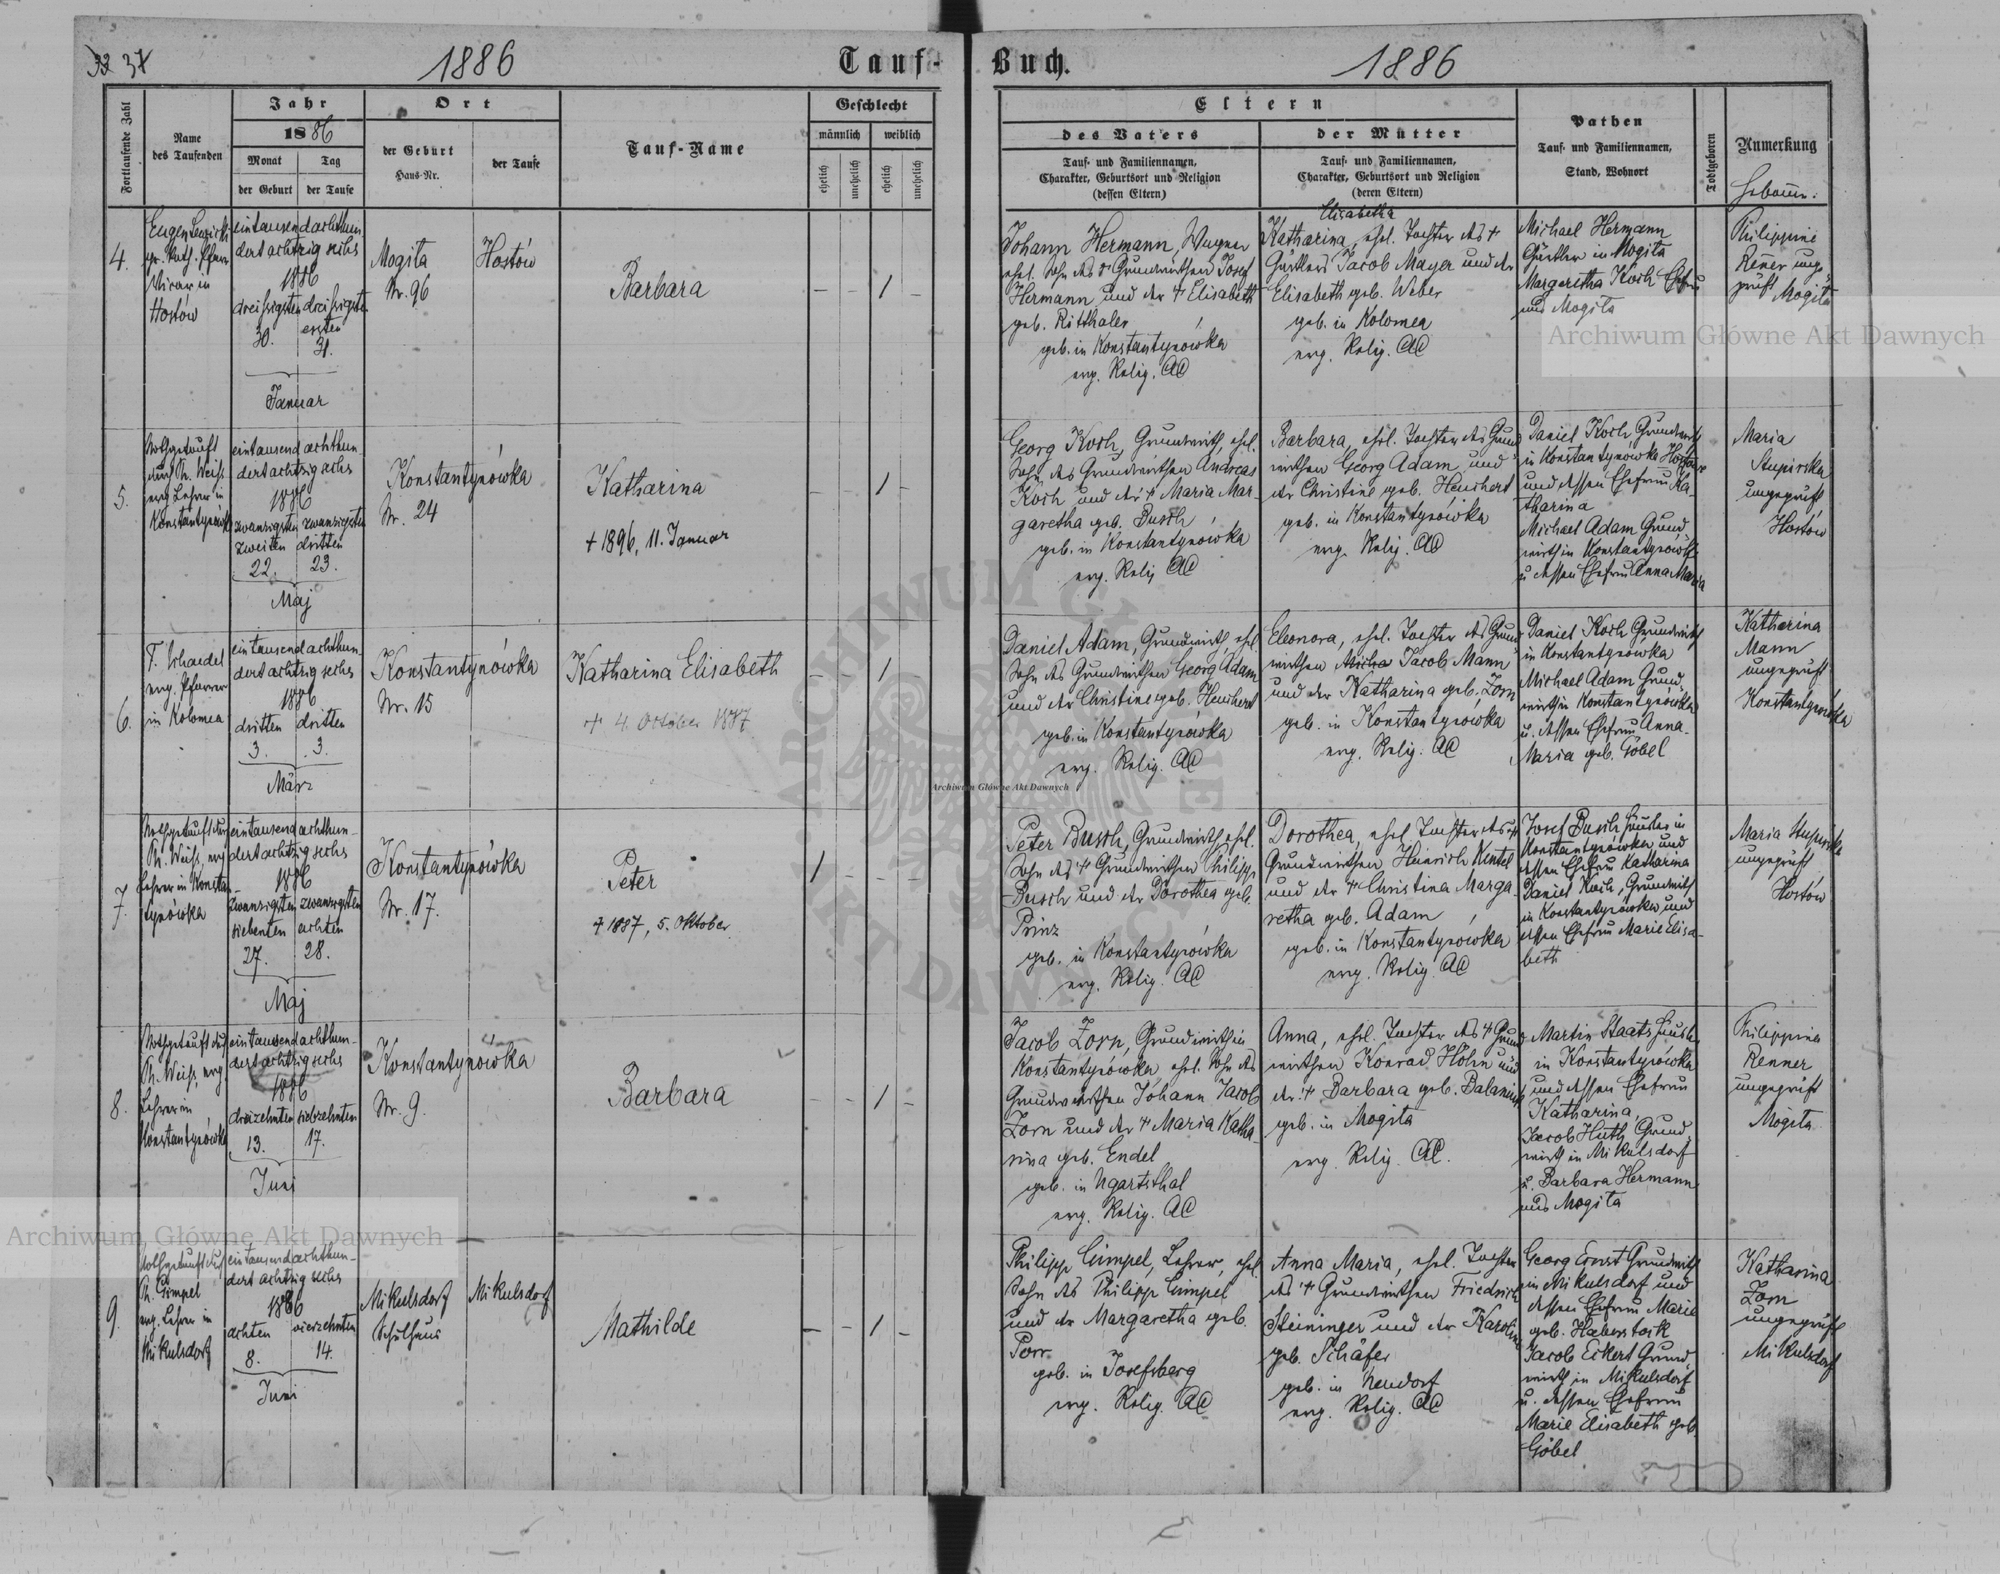 32 34
1886
Tauf-
Buch.
1886
Fortlaufende Zahl
Name
des Taufenden
Jahr
1886
Monat
Tag
der Geburt
der Taufe
Ort
der Geburt
Haus-Nr.
der Taufe
Tauf-Name
Geschlecht
männlich
weiblich
ehelich
unehelich
ehelich
unehelich
Eltern
des Vaters
Tauf- und Familiennamen,
Charakter, Geburtsort und Religion
(dessen Eltern)
der Mütter
Tauf- und Familiennamen,
Charakter, Geburtsort und Religion
(deren Eltern)
Pathen
Tauf- und Familiennamen,
Stand, Wohnort
Todtgeboren
Anmerkung
4.
Eugen
gr. kath. Pfarr
Vicar in
Hostów
eintausendachthun-
dertachtzig sechs
1886
dreißigsten dreißigst
ersten
30. 31.
Januar
Mogila
Nr. 96
Hostów
Barbara
– – 1 –
Johann Hermann, Wagner
ehel. Sohn des † Grundwirthen Josef
Hermann und der † Elisabeth
geb. Ritthaler
geb. in Konstantynówka
evg. Relig. AC
Elisabetha
Katharina, ehel. Tochter des †
Gärtlers Jacob Mayer und der
Elisabeth geb. Weber
geb. in Kolomea
evg. Relig. AC
Michael Hermann
Gärtler in Mogila
Margaretha Koch Ehefrau
aus Mogila
Philippine
Renner unge-
prüft Mogila
5.
Nothgetauft
durch Ph. Weiß
evg Lehrer in
Konstantynówka
eintausend achthun-
dertachtzig sechs
1886
zwanzigsten zwanzigsten
zweiten dritten
22. 23.
Maj
Konstantynówka
Nr. 24
Katharina
† 1896, 11. Januar
– – 1 –
Georg Koch, Grundwirth, ehel.
Sohn des Grundwirthen Andreas
Koch und der † Maria Mar-
garetha geb. Busch
geb. in Konstantynówka
evg. Relig AC
Barbara, ehel. Tochter des Grund-
wirthen Georg Adam und
der Christine geb. Heuchert
geb. in Konstantynówka
evg. Relig. AC
Daniel Koch Grundwirth
in Konstantynówka
und dessen Ehefrau Ka-
tharina
Michael Adam Grund-
wirth in Konstantynówka
u dessen Ehefrau Anna Maria
Maria
Stupirska
ungeprüft
Hostów
6.
evg. Pfarrer
in Kolomea
eintausendachthun-
dertachtzig sechs
1886
dritten dritten
3. 3.
März
Konstantynówka
Nr. 15
Katharina Elisabeth
† 4. October 1887
– – 1
Daniel Adam, Grundwirth, ehel.
Sohn des Grundwirthen Georg Adam
und der Christine geb. Heuchert
geb. in Konstantynówka
evg. Relig. AC
Eleonora, ehel. Tochter des Grund-
wirthen Jacob Mann
und der Katharina geb. Zorn
geb. in Konstantynówka
evg. Relig. AC
Daniel Koch Grundwirth
in Konstantynówka
Michael Adam Grund-
wirth in Konstantynówka
u. dessen Ehefrau Anna-
Maria geb. Göbel
Katharina
Mann
ungeprüft
Konstantynówka
7.
Nothgetauft dur
Ph. Weiß, evg
Lehrer in Konstan-
tynówka
eintausend achthun-
dertachtzig sechs
1886
zwanzigsten zwanzigsten
siebenten achten
27. 28.
Maj
Konstantynówka
Nr. 17.
Peter
† 1887, 5. Oktober
1 – – –
Peter Busch, Grundwirth, ehel.
Sohn des † Grundwirthen Philipp
Busch und der Dorothea geb.
Prinz
geb. in Konstantynówka
evg. Relig. AC
Dorothea, ehel. Tochter des †
Grundwirthen Heinrich Kentel
und der † Christina Marga-
retha geb. Adam
geb. in Konstantynówka
evg. Relig. AC
Josef Busch Häusler in
Konstantynówka und
dessen Ehefrau Katharina
Daniel Koch, Grundwirth
in Konstantynówka und
dessen Ehefrau Marie Elisa-
beth
Maria Stupirska
ungeprüft
Hostów
8.
Nothgetauft dur
Ph. Weiß, evg.
Lehrer in
Konstantynówka
eintausend achthun-
dertachtzig sechs
1886
dreizehnten siebzehnten
13. 17.
Juni
Konstantynówka
Nr. 9.
Barbara
– – 1 –
Jacob Zorn, Grundwirth in
Konstantynówka, ehel. Sohn des
Grundwirthen Johann Jacob
Zorn und der † Maria Katha-
rina geb. Endel
geb. in Ugartsthal
evg. Relig. AC
Anna, ehel. Tochter des † Grund
wirthen Konrad Höhn und
der † Barbara geb.
geb. in Mogila
evg. Relig. AC.
Martin Staatz Häusler
in Konstantynówka
und dessen Ehefrau
Katharina
Jacob Huth Grund-
wirth in Mikulsdorf
u. Barbara Hermann
aus Mogila
Philippine
Renner
ungeprüft
Mogila
9.
Nothgetauft dur
Ph. Gimpel
evg. Lehrer in
Mikulsdorf
eintausendachthun-
dert achtzig sechs
1886
achten vierzehnten
8. 14.
Juni
Mikulsdorf
Schulhaus
Mikulsdorf
Mathilde
– – 1 –
Philipp Gimpel, Lehrer, ehel.
Sohn des Philipp Gimpel
und der Margaretha geb.
Porr
geb. in Josefsberg
evg. Relig. AC
Anna Maria, ehel. Tochter
des † Grundwirthen Friedrich
Steininger und der Karoline
geb. Schäfer
geb. in Neudorf
evg. Relig. AC
Georg Ernst Grundwirth
in Mikulsdorf und
dessen Ehefrau Marie
geb. Haberstock
Jacob Eckert Grund-
wirth in Mikulsdorf
u. dessen Ehefrau
Marie Elisabeth geb.
Göbel
Katharina
Zorn
ungeprüft
Mikulsdorf
Archiwum Główne Akt Dawnych
Archiwum Główne Akt Dawnych
Archiwum Główne Akt Dawnych
ARCHIWUM GŁÓWNE AKT DAWNYCH